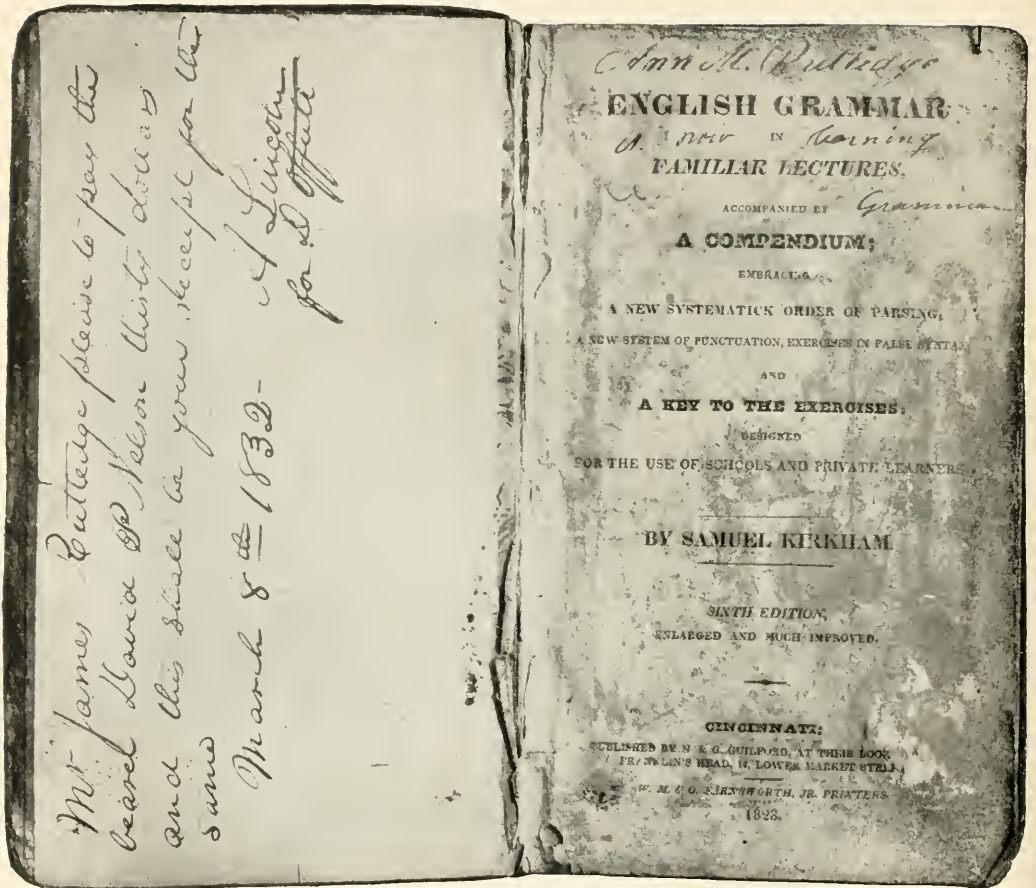 Mr James Rutledge please to pay the
bearer David P Nelson thirty dollars
and this shall be your receipt for the
same
March 8th 1832- A Lincoln
for D Offutt
Ann M. Rutledge
ENGLISH GRAMMAR
is now IN learning
FAMILIAR LECTURES,
ACCOMPANIED BY Grammar
A COMPENDIUM;
EMBRACING
A NEW SYSTEMATICK ORDER OF PARSING,
A NEW SYSTEM OF PUNCTUATION, EXERCISES IN FALSE SYNTAX,
AND
A KEY TO THE EXERCISES:
DESIGNED
FOR THE USE OF SCHOOLS AND PRIVATE LEARNERS.
BY SAMUEL KIRKHAM
SIXTH EDITION,
ENLARGED AND MUCH IMPROVED.
CINCINNATI:
PUBLISHED BY N. & G. GUILFORD, AT THEIR BOOK
FRANKLIN'S HEAD, 14, LOWER MARKET STREET
W. M. & O. FARNSWORTH, JR. PRINTERS
1828.